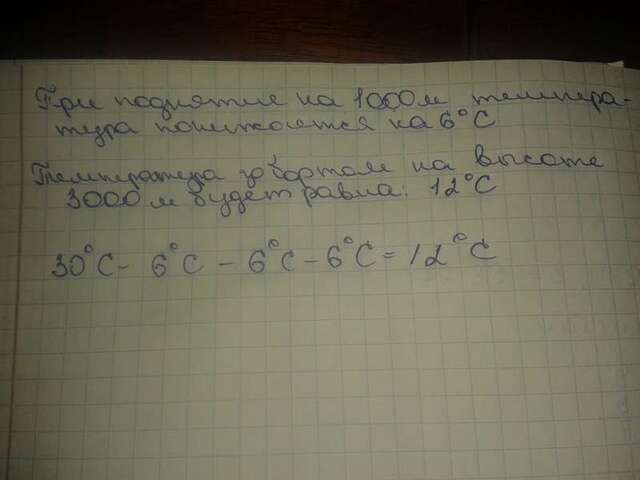 При поднятие на 1000м темпера-
тура понижается на 6°С
Температура за бортом на высоте
3000 м будет равна: 12°С
30°С - 6°С - 6°С - 6°С = 12°С